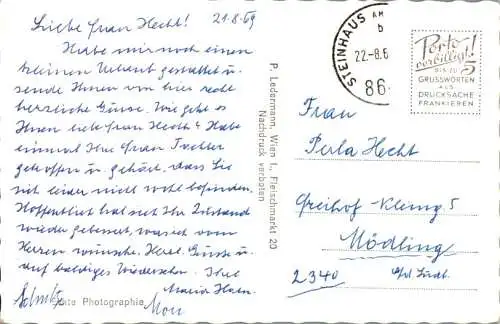 21.8.69
Liebe Frau Hecht!
Habe mir noch einen
kleinen Urlaub gestattet u.
sende Ihnen von hier recht
herzliche Grüsse. Wie geht es
Ihnen liebe Frau Hecht? Habe
einmal Ihre Frau Tochter
getroffen u. gehört, dass Sie
sich leider nicht wohl befinden.
Hoffentlich hat sich Ihr Zustand
wieder gebessert, was ich vom
Herzen wünsche. Herzl. Grüsse u.
auf baldiges Wiedersehen. Ihre
Maria
Echte Photographie
P. Ledermann, Wien I., Fleischmarkt 20
Nachdruck verboten
STEINHAUS AM
b
22-8.6
86
Porto
verbilligt!
BIS ZU 5
GRUSSWORTEN
ALS
DRUCKSACHE
FRANKIEREN
Frau
Perla Hecht
Freihof-Klimg. 5
Mödling
2340